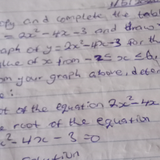 and complete the table
= 2x² - 4x - 3 and draw
graph of y = 2x² - 4x - 3 for the
value of x from -2 ≤ x ≤
your graph above, dete
of the equation 2x² - 4x
root of the equation
x² - 4x - 3 = 0